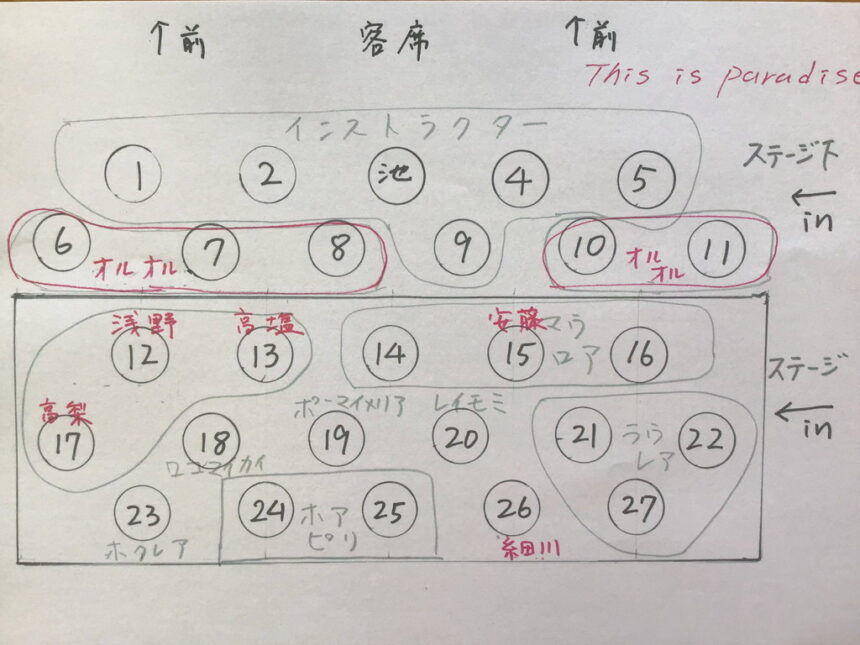 ↑前 客席 ↑前
This is paradise
インストラクター
ステージ下
← in
1 2 池 4 5
6 7 8 9 10 11
オルオル オルオル
浅野 高塩 安藤 マウロア
12 13 14 15 16
ステージ
← in
高梨 ポーマイメリア レイモミ
17 18 19 20 21 ラウレア 22
ロコマイカイ
23 24 ホアピリ 25 26 27
ホクレア 細田川